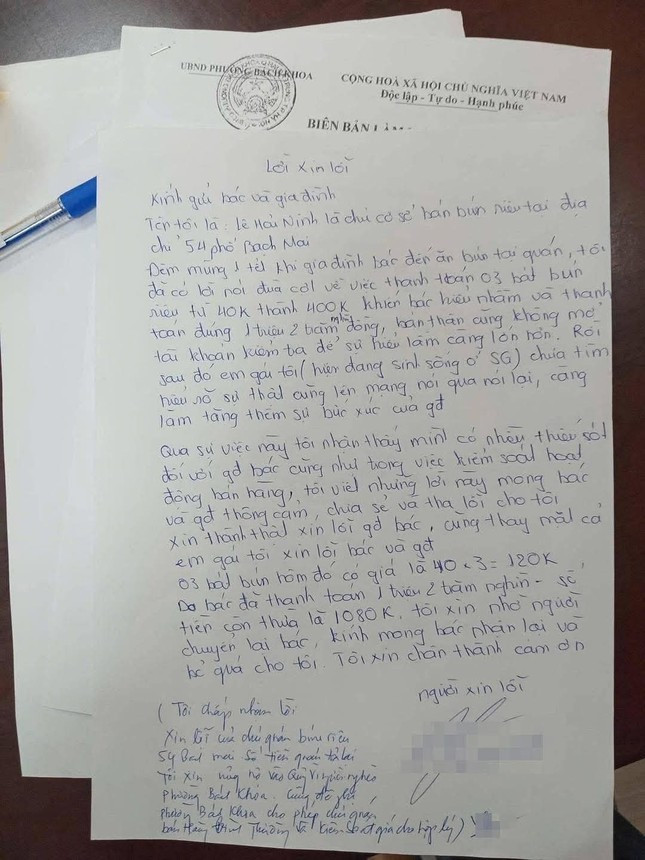 UBND PHƯỜNG BÁCH KHOA
CỘNG HOÀ XÃ HỘI CHỦ NGHĨA VIỆT NAM
Độc lập - Tự do - Hạnh phúc
BIÊN BẢN
Lời xin lỗi
Kính gửi bác và gia đình
Tên tôi là: Lê Hải Ninh là chủ cơ sở bán bún riêu tại địa
chỉ 54 phố Bạch Mai
Đêm mùng 1 tết khi gia đình bác đến ăn bún tại quán, tôi
đã có lời nói đùa cợt về việc thanh toán 03 bát bún
riêu từ 40K thành 400K khiến bác hiểu nhầm và thanh
toán đúng 1 triệu 2 trăm nghìn đồng, bản thân cũng không mở
tài khoản kiểm tra để sự hiểu lầm càng lớn hơn. Rồi
sau đó em gái tôi (hiện đang sinh sống ở SG) chưa tìm
hiểu rõ sự thật cũng lên mạng nói qua nói lại, càng
làm tăng thêm sự bức xúc của gđ
Qua sự việc này tôi nhận thấy mình có nhiều thiếu sót
đối với gđ bác cũng như trong việc kiểm soát hoạt
động bán hàng, tôi viết những lời này mong bác
và gđ thông cảm, chia sẻ và tha lỗi cho tôi
Xin thành thật xin lỗi gđ bác, cũng thay mặt cả
em gái tôi xin lỗi bác và gđ
03 bát bún hôm đó có giá là 40 x 3 = 120K
Do bác đã thanh toán 1 triệu 2 trăm nghìn - số
tiền còn thừa là 1080K, tôi xin nhờ người
chuyển lại bác, kính mong bác nhận lại và
bỏ quá cho tôi. Tôi xin chân thành cảm ơn
người xin lỗi
( Tôi chấp nhận lời
Xin lỗi của chủ quán bún riêu
54 Bạch Mai số tiền quán trả lại
Tôi xin ủng hộ vào Quỹ Vì người nghèo
phường Bách Khoa. Cũng đề nghị
phường Bách Khoa cho phép chủ quán
bán hàng bình thường và kiểm soát giá cho hợp lý)